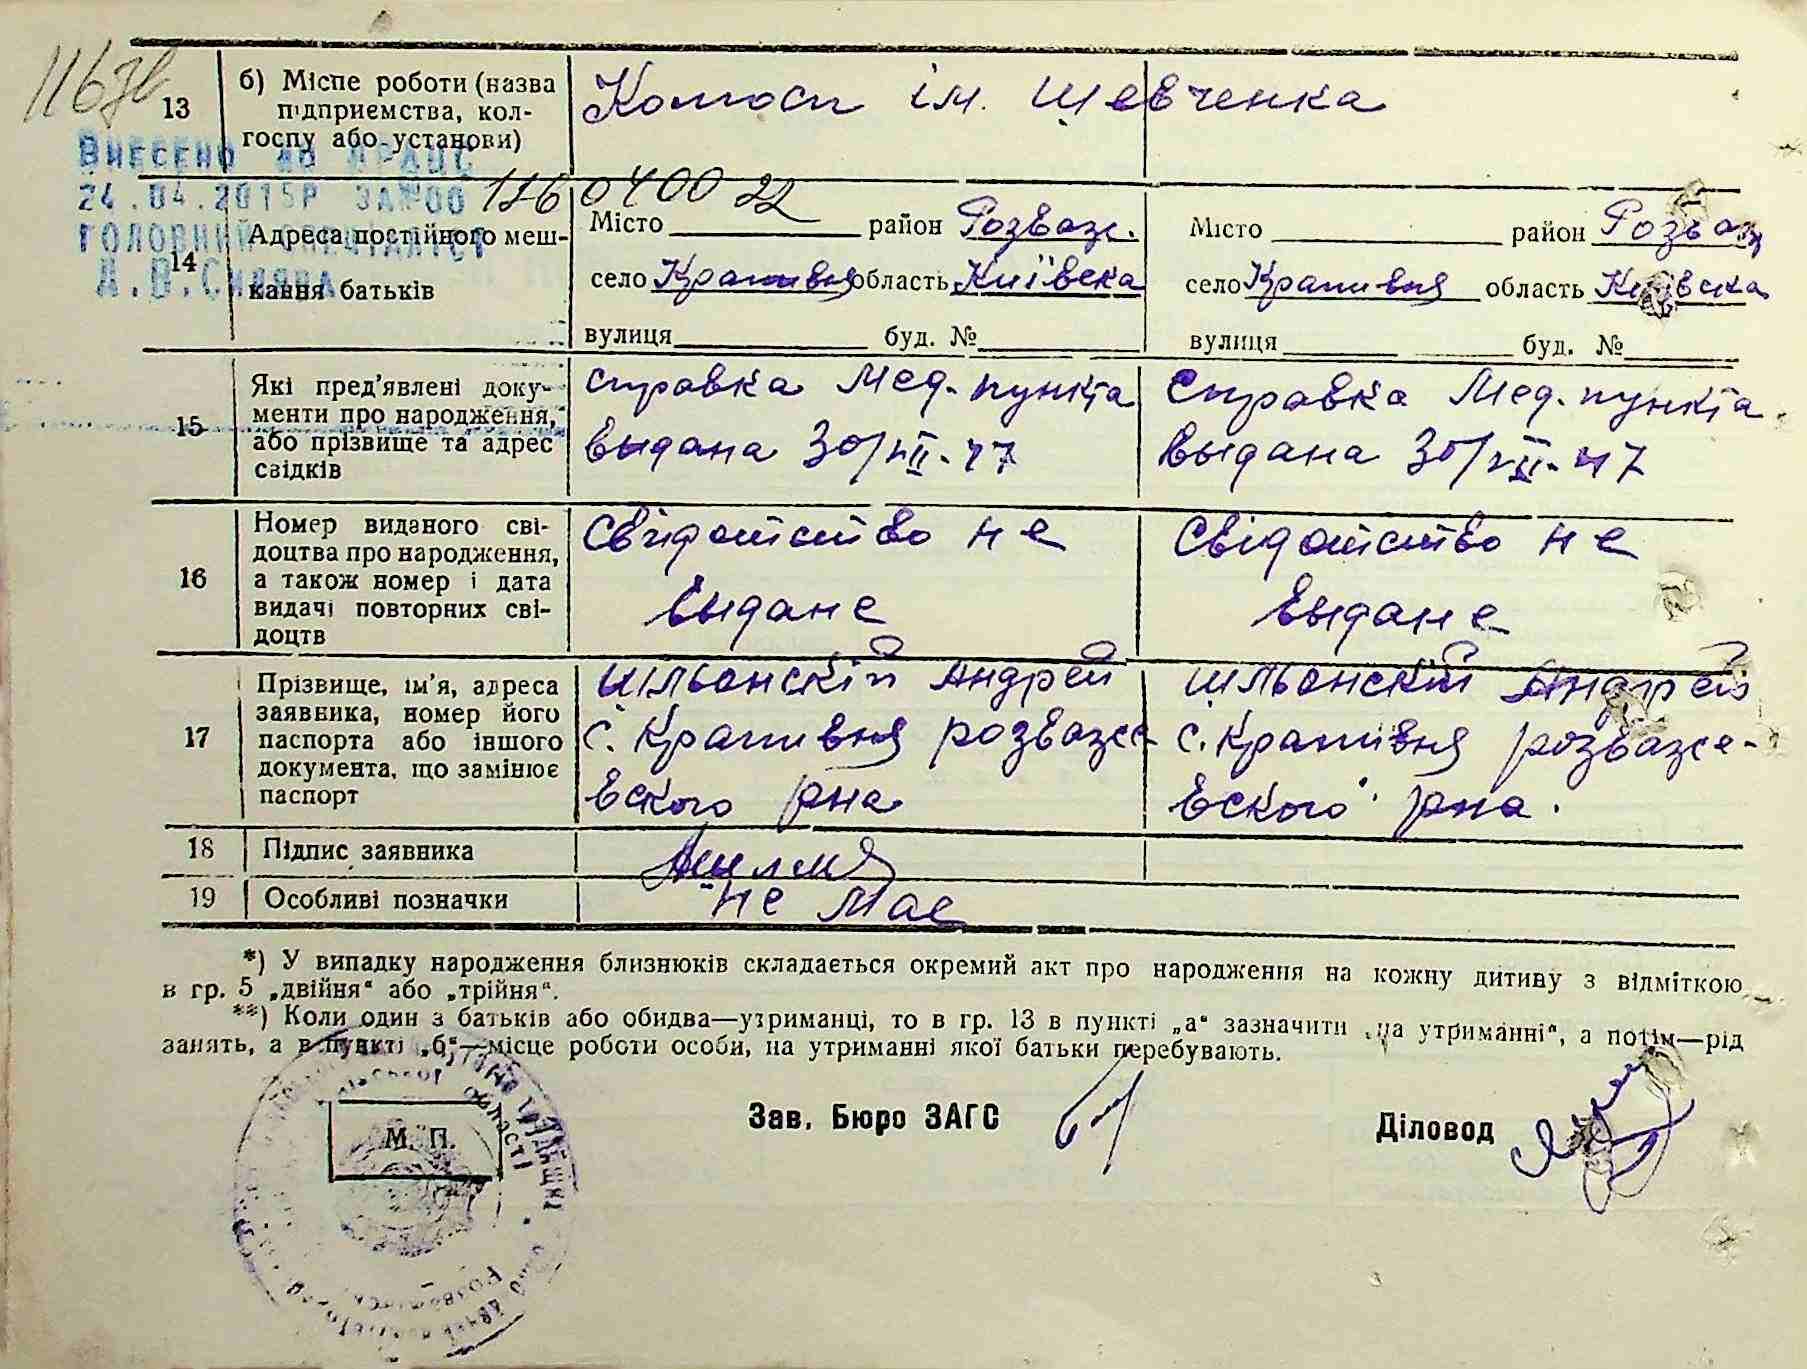 13
б) Місце роботи (назва
підприємства, кол-
госпу або установи)
Колгосп ім. Шевченка
ВНЕСЕНО ДО ДРАЦС
24.04.2015Р ЗА№00 1160400 22
ГОЛОВНИЙ СПЕЦІАЛІСТ
14
Адреса постійного меш-
кання батьків
Місто район Розваж.
село Крапивня область Київска
вулиця буд. №
Місто район Розваж
село Крапивня область Київска
вулиця буд. №
15
Які пред'явлені доку-
менти про народження,
або прізвище та адрес
свідків
справка Мед. пункта
выдана 30/XII-47
Справка Мед. пункта
выдана 30/XII-47
16
Номер виданого сві-
доцтва про народження,
а також номер і дата
видачі повторних сві-
доцтв
Свідотство не
выдане
Свідотство не
выдане
17
Прізвище, ім'я, адреса
заявника, номер його
паспорта або іншого
документа, що замінює
паспорт
Андрей
с. Крапивня розваже-
вского рна
Андрей
с. Крапивня розваже-
вского рна.
18
Підпис заявника
19
Особливі позначки
не має
*) У випадку народження близнюків складається окремий акт про народження на кожну дитину з відміткою
в гр. 5 „двійня“ або „трійня“.
**) Коли один з батьків або обидва—утриманці, то в гр. 13 в пункті „а“ зазначити „на утриманні“, а потім—рід
занять, а в пункті „б“—місце роботи особи, на утриманні якої батьки перебувають.
М. П.
Зав. Бюро ЗАГС
Діловод